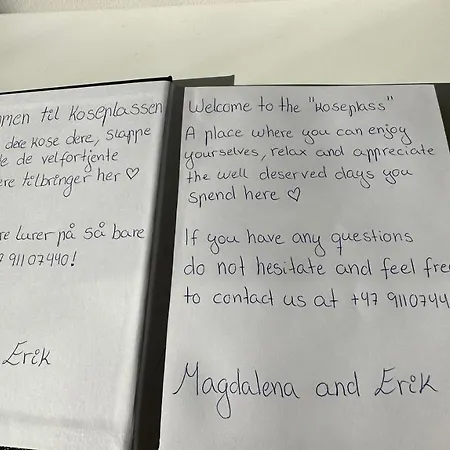 men til Koseplassen
dere kose dere, slappe
de velfortjente
ere tilbringer her ♡
re lurer på så bare
7 91107440!
Erik
Welcome to the "Koseplass"
A place where you can enjoy
yourselves, relax and appreciate
the well deserved days you
spend here ♡
If you have any questions
do not hesitate and feel free
to contact us at +47 9110744
Magdalena and Erik